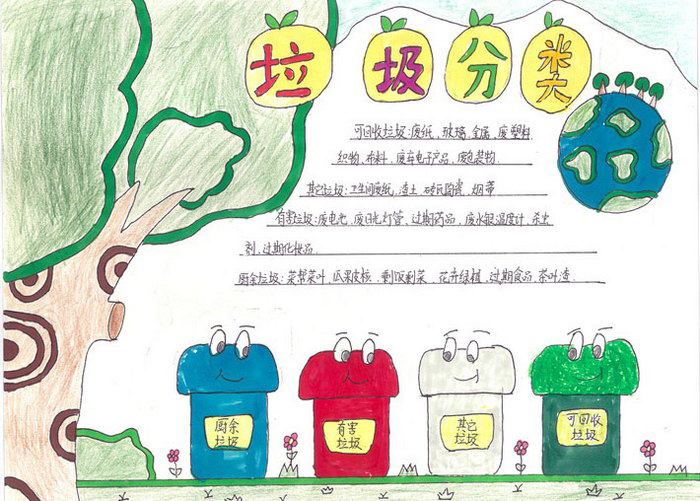 垃圾分类
可回收垃圾:废纸、玻璃、金属、废塑料
织物、布料、废弃电子产品、废包装物.
其它垃圾:卫生间废纸、渣土、砖瓦陶瓷、烟蒂
有害垃圾:废电池、废日光灯管、过期药品、废水银温度计、杀虫
剂、过期化妆品.
厨余垃圾:菜帮菜叶、瓜果皮核、剩饭剩菜、花卉绿植、过期食品、茶叶渣.
厨余
垃圾
有害
垃圾
其它
垃圾
可回收
垃圾